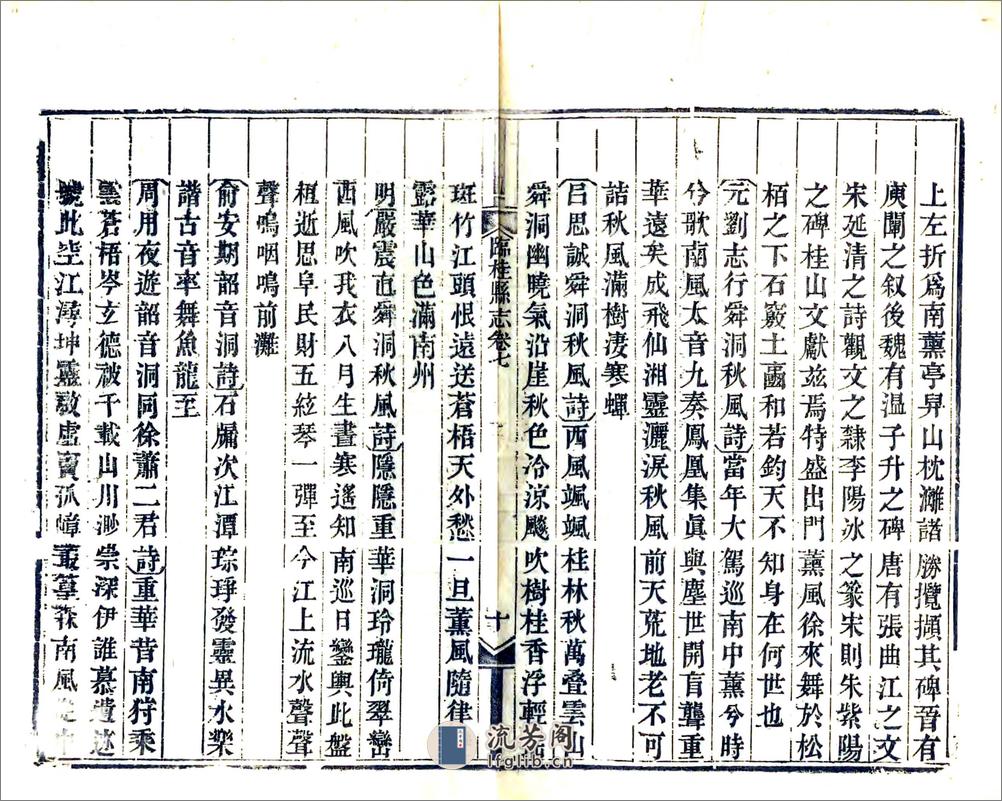 上左折爲南薰亭昇山枕灕諸勝攬擷其碑晉有
庾闡之叙後魏有温子升之碑唐有張曲江之文
宋延清之詩觀文之隸李陽冰之篆宋則朱紫陽
之碑桂山文獻兹焉特盛出門薰風徐來舞於松
栢之下石竅土鬲和若鈞天不知身在何世也
元劉志行舜洞秋風詩當年大駕巡南中薰兮時
兮歌南風太音九奏鳳凰集眞與塵世開盲聾重
華遠矣成飛仙湘靈灑淚秋風前天荒地老不可
詰秋風滿樹淒寒蟬
吕思誠舜洞秋風詩西風颯颯桂林秋萬叠雲山
舜洞幽曉氣沿崖秋色冷涼飈吹樹桂香浮輕
臨桂縣志卷七
十
斑竹江頭恨遠送蒼梧天外愁一旦薰風隨律
露華山色滿南州
明嚴震直舜洞秋風詩隱隱重華洞玲瓏倚翠巒
西風吹我衣八月生晝寒遙知南巡日鑾輿此盤
桓逝思阜民財五絃琴一彈至今江上流水聲聲
聲鳴咽鳴前灘
俞安期韶音洞詩石牖次江潭琮琤發靈異水樂
諧古音率舞魚龍至
周用夜遊韶音洞同徐蕭二君詩重華昔南狩乘
雲蒼梧岑玄德被千載山川渺崇深伊誰慕遺迹
此空江潯坤靈敞虛竇孤嶂叢篁森南風
流芳阁
lfglib.cn